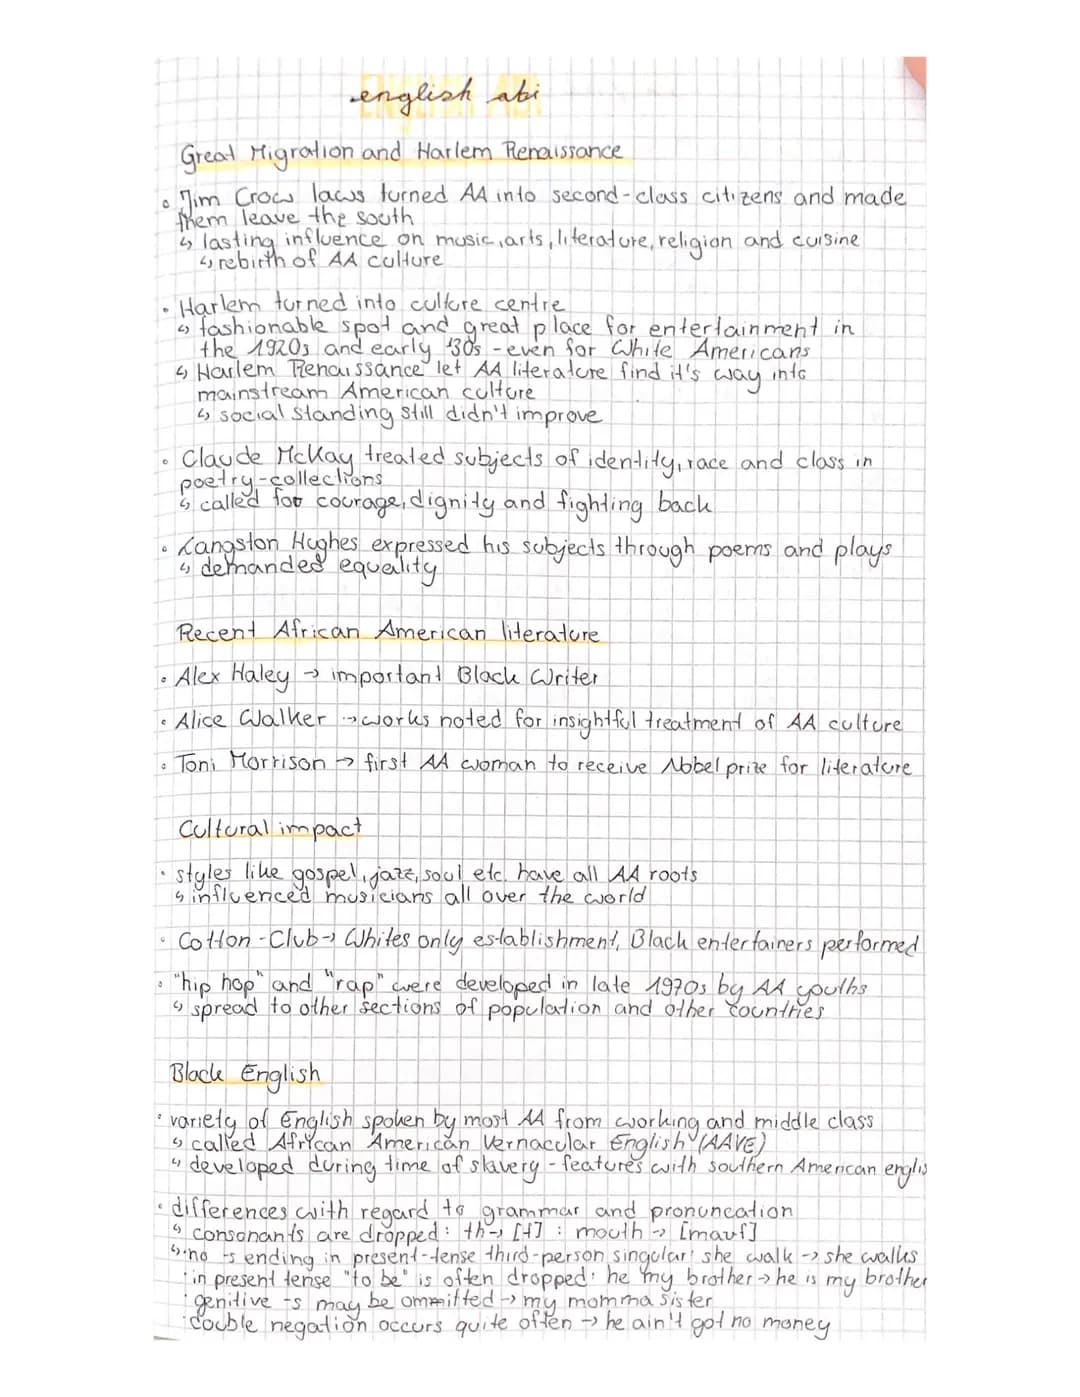 english abi
Great Migration and Harlem Renaissance
• Jim Crow laws turned AA into second-class citizens and made
them leave the south
↳ lasting influence on music, arts, literature, religion and cuisine
↳ rebirth of AA culture
• Harlem turned into culture centre
↳ fashionable spot and great place for entertainment in
the 1920s and early '30s - even for White Americans
↳ Harlem Renaissance let AA literature find it's way into
mainstream American culture
↳ social standing still didn't improve
• Claude McKay treated subjects of identity, race and class in
poetry-collections
↳ called for courage, dignity and fighting back
• Langston Hughes expressed his subjects through poems and plays
↳ demanded equality
Recent African American literature
• Alex Haley → important Black Writer
• Alice Walker → works noted for insightful treatment of AA culture
• Toni Morrison → first AA woman to receive Nobel prize for literature
Cultural impact
• styles like gospel, jazz, soul etc. have all AA roots
↳ influenced musicians all over the world
• Cotton-Club → Whites only establishment, Black entertainers performed
• "hip hop" and "rap" were developed in late 1970s by AA youths
↳ spread to other sections of population and other countries
Black English
• variety of English spoken by most AA from working and middle class
↳ called African American Vernacular English (AAVE)
↳ developed during time of slavery - features with southern American englis
• differences with regard to grammar and pronuncation
↳ consonants are dropped: th → [f] : mouth → [mauf]
↳ no -s ending in present-tense third-person singular: she walk → she walks
• in present tense "to be" is often dropped: he my brother → he is my brother
• genitive -s may be ommitted → my momma sister
• double negation occurs quite often → he ain't got no money